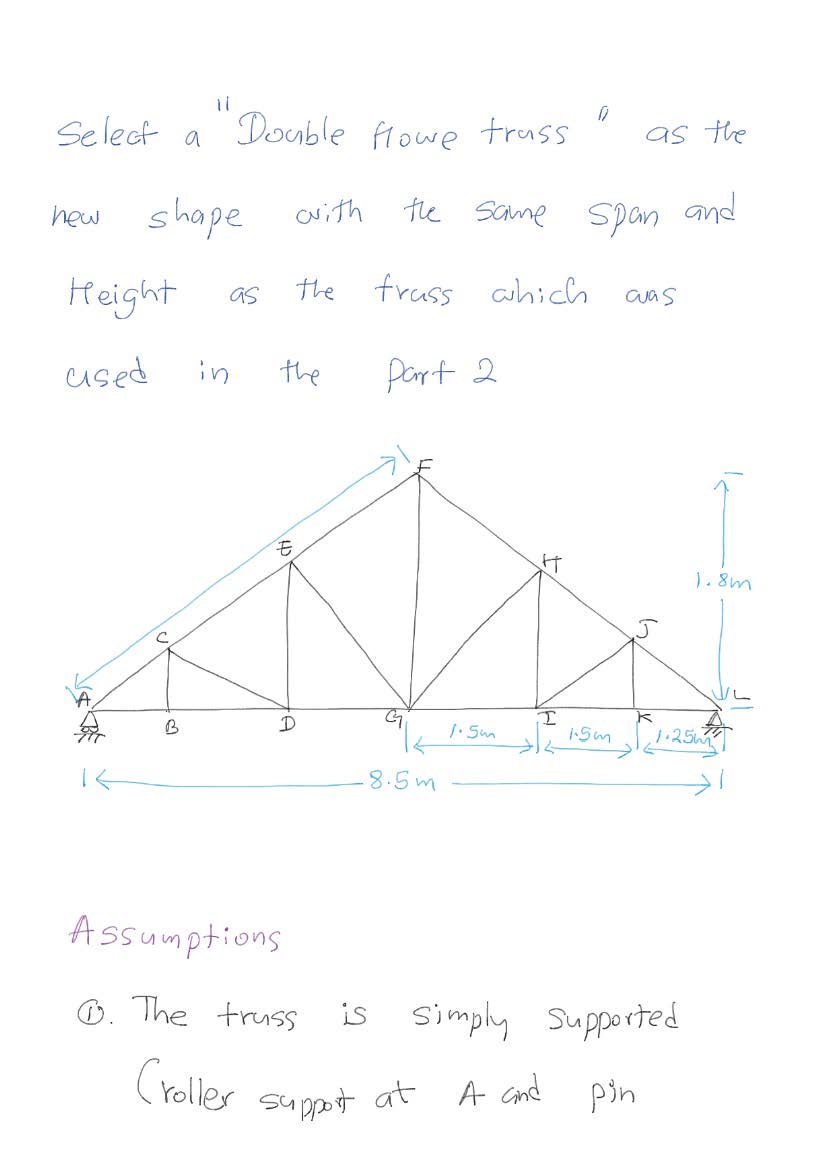 Select a "Double Howe truss" as the
new shape with the same span and
Height as the truss which was
used in the Part 2
F
E
H
1.8m
C
J
A
L
B
D
G
I
K
1.5m
1.5m
1.25m
8.5m
Assumptions
①. The truss is simply supported
(roller support at A and pin